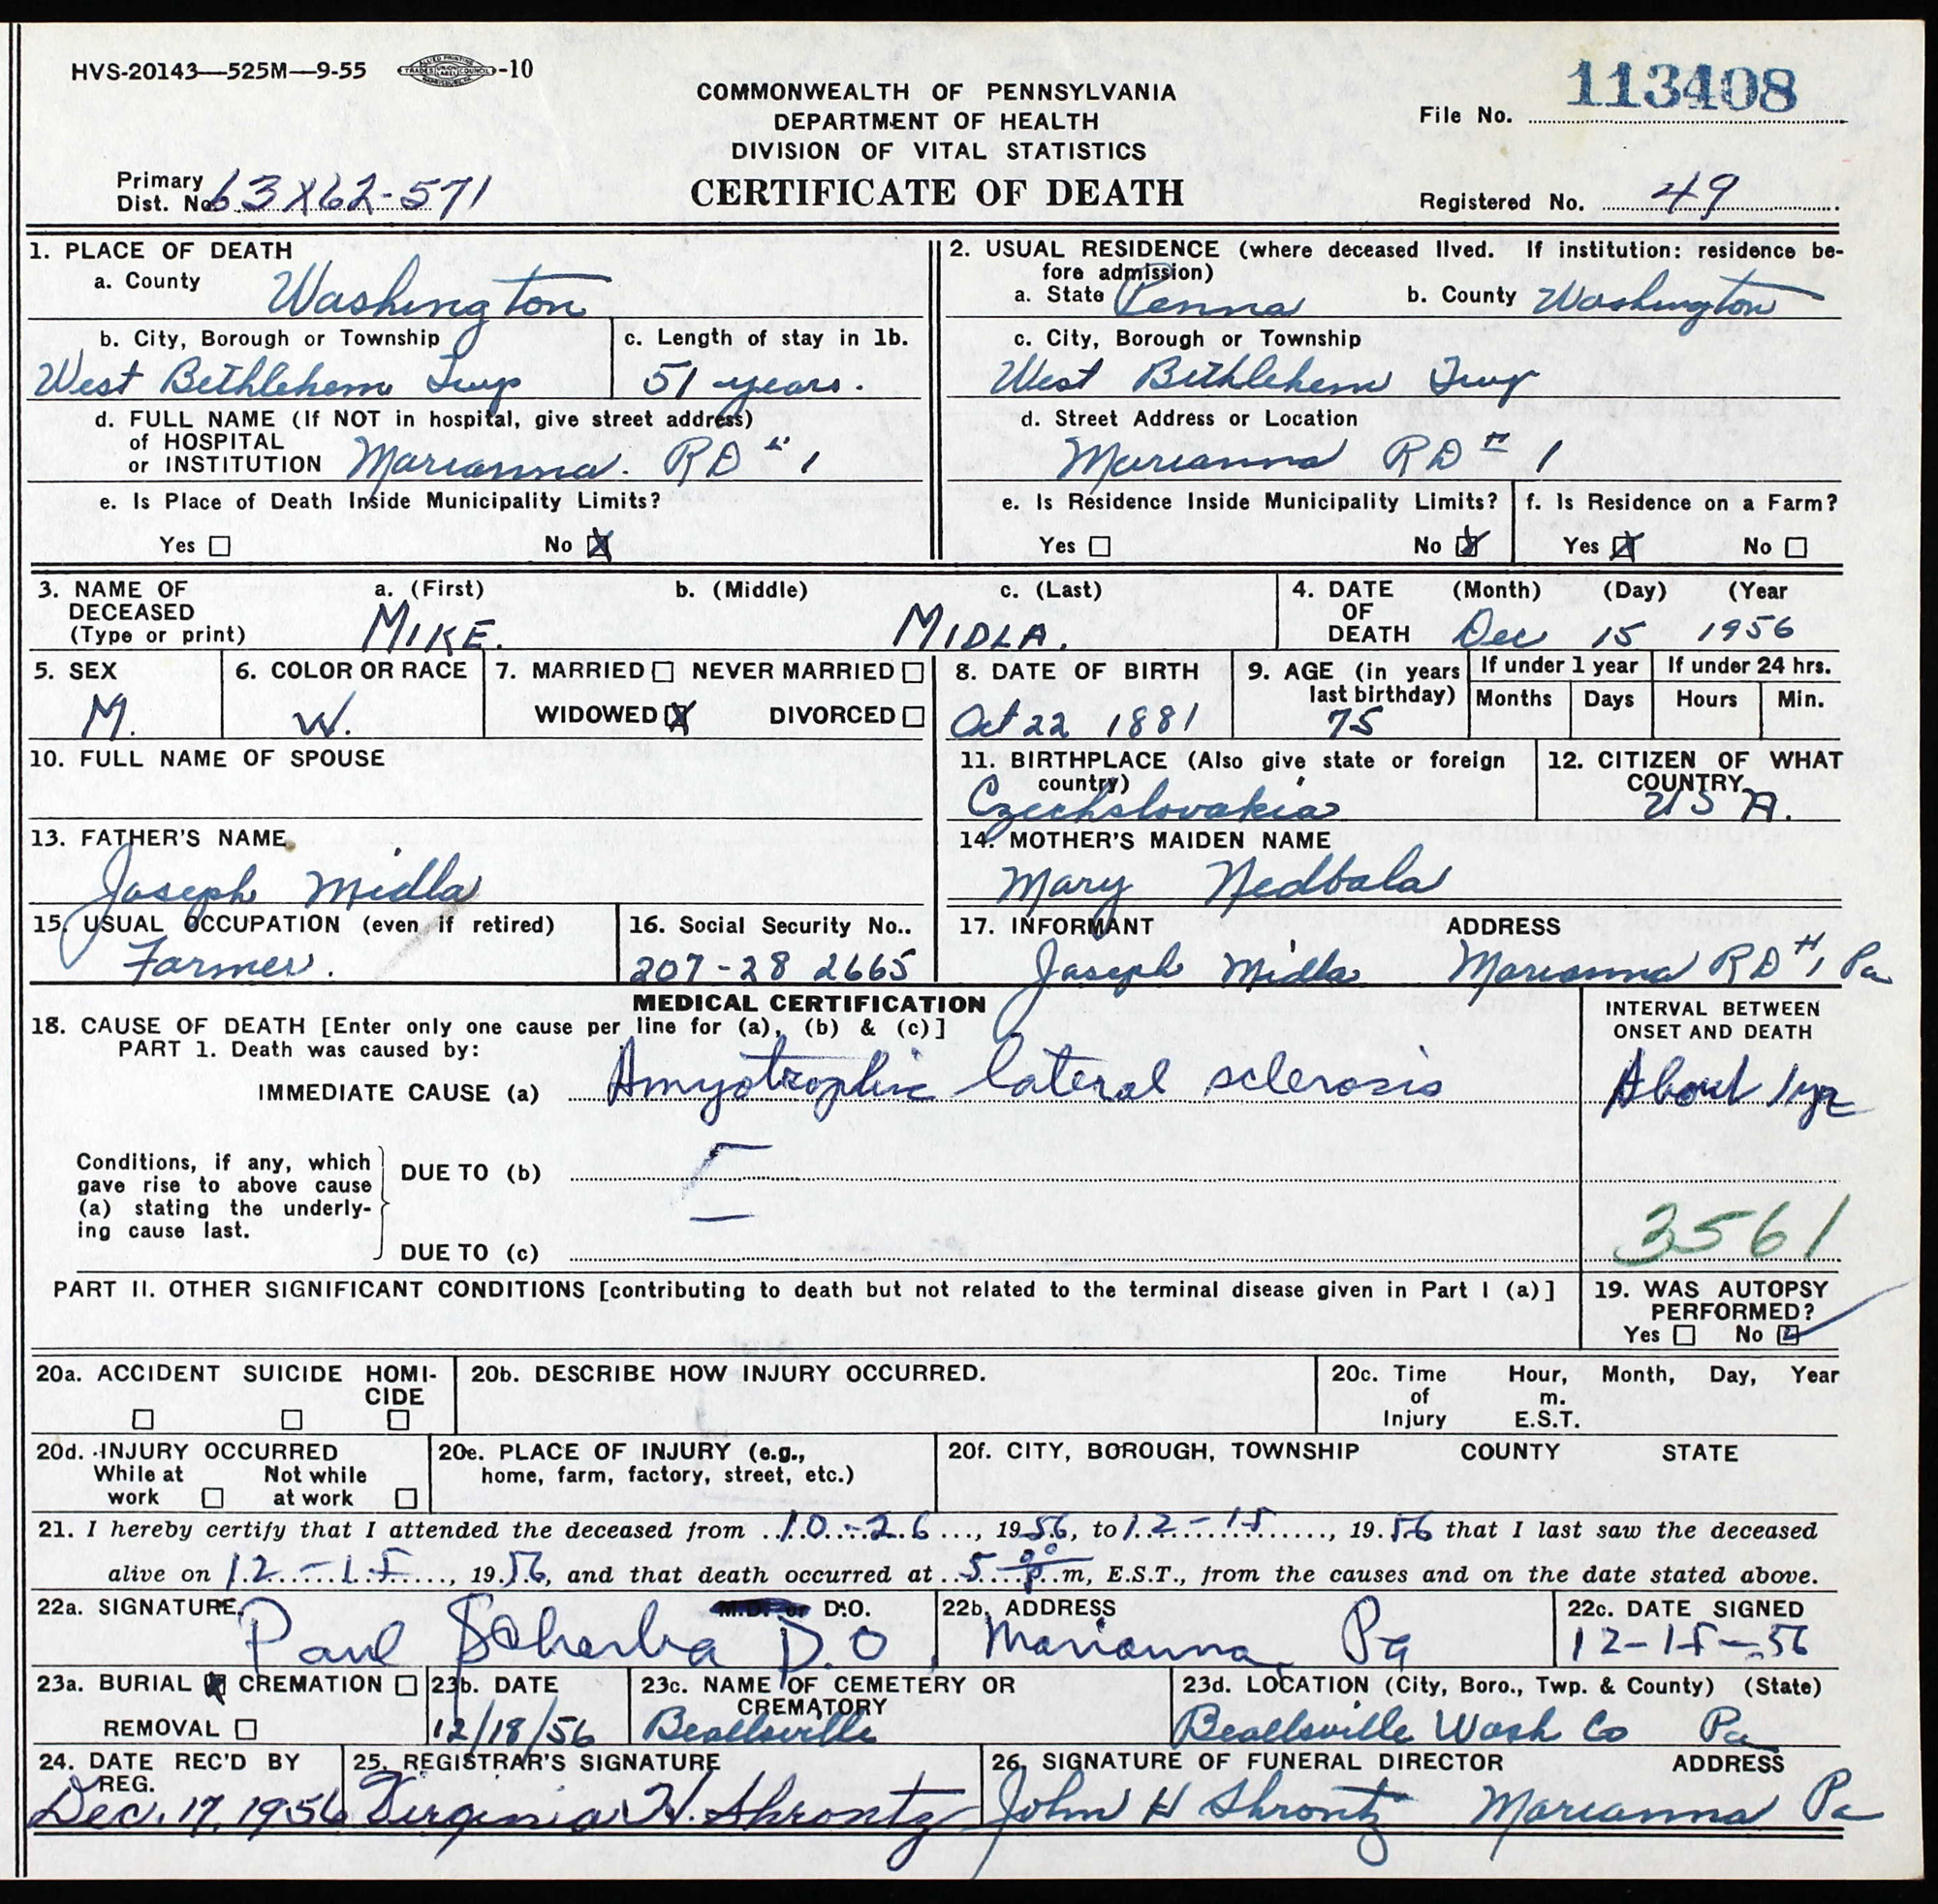 HVS-20143—525M—9-55 -10
COMMONWEALTH OF PENNSYLVANIA
DEPARTMENT OF HEALTH
DIVISION OF VITAL STATISTICS
CERTIFICATE OF DEATH
File No. 113408
Primary
Dist. No. 63X62-571
Registered No. 49
1. PLACE OF DEATH
a. County Washington
b. City, Borough or Township
West Bethlehem Twp
c. Length of stay in 1b.
51 years.
d. FULL NAME (If NOT in hospital, give street address)
of HOSPITAL
or INSTITUTION Marianna. RD # 1
e. Is Place of Death Inside Municipality Limits?
Yes ☐ No ☒
2. USUAL RESIDENCE (where deceased lived. If institution: residence be-
fore admission)
a. State Penna b. County Washington
c. City, Borough or Township
West Bethlehem Twp
d. Street Address or Location
Marianna RD # 1
e. Is Residence Inside Municipality Limits?
Yes ☐ No ☒
f. Is Residence on a Farm?
Yes ☒ No ☐
3. NAME OF
DECEASED
(Type or print)
a. (First) b. (Middle) c. (Last)
MIKE. MIDLA.
4. DATE
OF
DEATH
(Month) (Day) (Year
Dec 15 1956
5. SEX
M.
6. COLOR OR RACE
W.
7. MARRIED ☐ NEVER MARRIED ☐
WIDOWED ☒ DIVORCED ☐
8. DATE OF BIRTH
Oct 22 1881
9. AGE (in years
last birthday)
75
If under 1 year
Months Days
If under 24 hrs.
Hours Min.
10. FULL NAME OF SPOUSE
11. BIRTHPLACE (Also give state or foreign
country)
Czechslovakia
12. CITIZEN OF WHAT
COUNTRY
USA.
13. FATHER'S NAME
Joseph Midla
14. MOTHER'S MAIDEN NAME
Mary Nedbala
15. USUAL OCCUPATION (even if retired)
Farmer.
16. Social Security No..
207-28 2665
17. INFORMANT ADDRESS
Joseph Midla Marianna RD #1 Pa
MEDICAL CERTIFICATION
18. CAUSE OF DEATH [Enter only one cause per line for (a), (b) & (c)]
PART 1. Death was caused by:
IMMEDIATE CAUSE (a) Amyotrophic lateral sclerosis
INTERVAL BETWEEN
ONSET AND DEATH
About 1 yr
Conditions, if any, which
gave rise to above cause
(a) stating the underly-
ing cause last.
DUE TO (b)
DUE TO (c)
3561
PART II. OTHER SIGNIFICANT CONDITIONS [contributing to death but not related to the terminal disease given in Part I (a)]
19. WAS AUTOPSY
PERFORMED?
Yes ☐ No ☑
20a. ACCIDENT SUICIDE HOMI-
CIDE
☐ ☐ ☐
20b. DESCRIBE HOW INJURY OCCURRED.
20c. Time
of
Injury
Hour, Month, Day, Year
m.
E.S.T.
20d. INJURY OCCURRED
While at
work ☐
Not while
at work ☐
20e. PLACE OF INJURY (e.g.,
home, farm, factory, street, etc.)
20f. CITY, BOROUGH, TOWNSHIP COUNTY STATE
21. I hereby certify that I attended the deceased from 10-26, 1956, to 12-15, 1956 that I last saw the deceased
alive on 12-15, 1956, and that death occurred at 5 00 P.m, E.S.T., from the causes and on the date stated above.
22a. SIGNATURE M.D. or D.O.
Paul Scherba D.O.
22b. ADDRESS
Marianna Pa
22c. DATE SIGNED
12-15-56
23a. BURIAL ☒ CREMATION ☐
REMOVAL ☐
23b. DATE
12/18/56
23c. NAME OF CEMETERY OR
CREMATORY
Beallsville
23d. LOCATION (City, Boro., Twp. & County) (State)
Beallsville Wash Co Pa
24. DATE REC'D BY
REG.
Dec. 17, 1956
25. REGISTRAR'S SIGNATURE
Virginia H. Shrontz
26. SIGNATURE OF FUNERAL DIRECTOR ADDRESS
John H Shrontz Marianna Pa